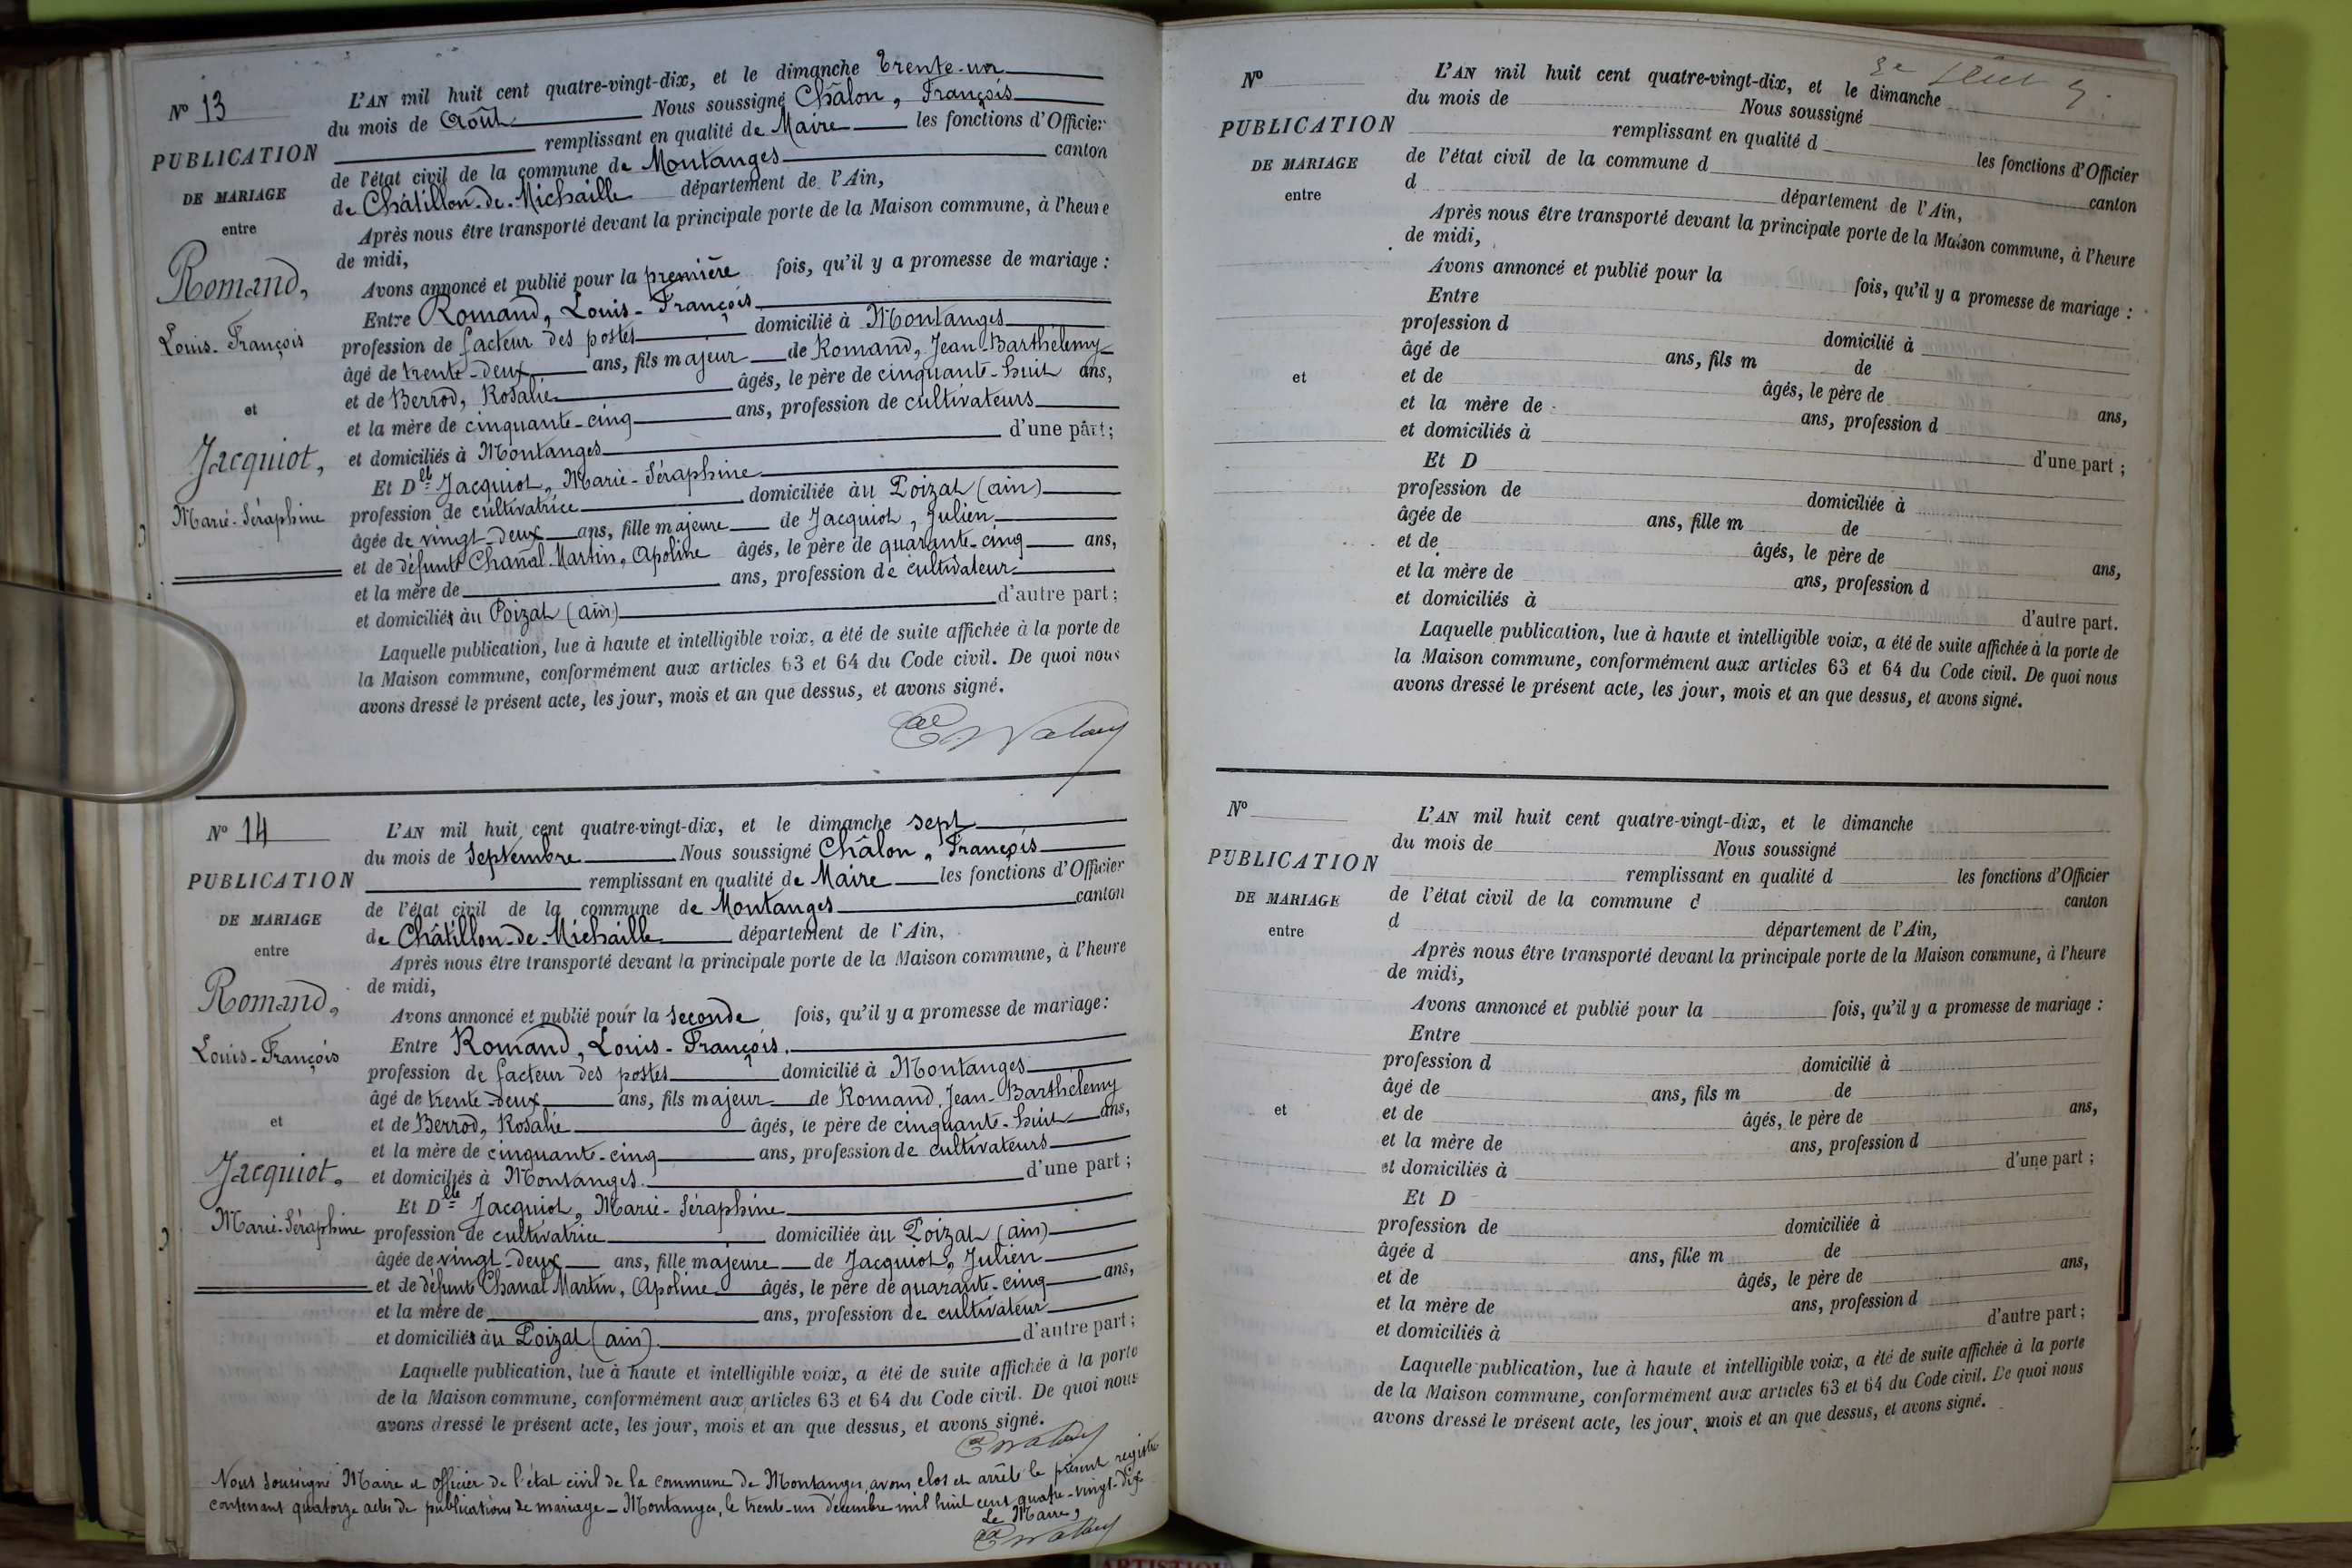 N° 13
PUBLICATION
DE MARIAGE
entre
Romand,
Louis-François
et
Jacquiot,
Marie-Séraphine
L'AN mil huit cent quatre-vingt-dix, et le dimanche trente-un
du mois de Août Nous soussigné Châlon, François
remplissant en qualité de Maire les fonctions d'Officier
de l'état civil de la commune de Montanges canton
de Châtillon-de-Michaille département de l'Ain,
Après nous être transporté devant la principale porte de la Maison commune, à l'heure
de midi,
Avons annoncé et publié pour la première fois, qu'il y a promesse de mariage :
Entre Romand, Louis-François
profession de facteur des postes domicilié à Montanges
âgé de trente-deux ans, fils majeur de Romand, Jean-Barthélemy
et de Berrod, Rosalie âgés, le père de cinquante-huit ans,
et la mère de cinquante-cinq ans, profession de cultivateurs
et domiciliés à Montanges d'une part ;
Et Dlle Jacquiot, Marie-Séraphine
profession de cultivatrice domiciliée au Poizat (ain)
âgée de vingt-deux ans, fille majeure de Jacquiot, Julien
et de défunte Chanal-Martin, Apoline âgés, le père de quarante-cinq ans,
et la mère de ans, profession de cultivateur
et domiciliés au Poizat (ain) d'autre part ;
Laquelle publication, lue à haute et intelligible voix, a été de suite affichée à la porte de
la Maison commune, conformément aux articles 63 et 64 du Code civil. De quoi nous
avons dressé le présent acte, les jour, mois et an que dessus, et avons signé.
N° 14
PUBLICATION
DE MARIAGE
entre
Romand,
Louis-François
et
Jacquiot,
Marie-Séraphine
L'AN mil huit cent quatre-vingt-dix, et le dimanche sept
du mois de Septembre Nous soussigné Châlon, François
remplissant en qualité de Maire les fonctions d'Officier
de l'état civil de la commune de Montanges canton
de Châtillon-de-Michaille département de l'Ain,
Après nous être transporté devant la principale porte de la Maison commune, à l'heure
de midi,
Avons annoncé et publié pour la seconde fois, qu'il y a promesse de mariage :
Entre Romand, Louis-François.
profession de facteur des postes domicilié à Montanges
âgé de trente-deux ans, fils majeur de Romand, Jean-Barthélemy
et de Berrod, Rosalie âgés, le père de cinquante-huit ans,
et la mère de cinquante-cinq ans, profession de cultivateurs
et domiciliés à Montanges. d'une part ;
Et Dlle Jacquiot, Marie-Séraphine
profession de cultivatrice domiciliée au Poizat (ain)
âgée de vingt-deux ans, fille majeure de Jacquiot, Julien
et de défunte Chanal Martin, Apoline âgés, le père de quarante-cinq ans,
et la mère de ans, profession de cultivateur
et domiciliés au Poizat (ain). d'autre part ;
Laquelle publication, lue à haute et intelligible voix, a été de suite affichée à la porte
de la Maison commune, conformément aux articles 63 et 64 du Code civil. De quoi nous
avons dressé le présent acte, les jour, mois et an que dessus, et avons signé.
Nous soussigné Maire et officier de l'état civil de la commune de Montanges, avons clos et arrêté le présent registre
contenant quatorze actes de publications de mariage – Montanges, le trente-un décembre mil huit cent quatre-vingt-dix
Le Maire,
N°
PUBLICATION
DE MARIAGE
entre
et
L'AN mil huit cent quatre-vingt-dix, et le dimanche
du mois de Nous soussigné
remplissant en qualité d les fonctions d'Officier
de l'état civil de la commune d canton
d département de l'Ain,
Après nous être transporté devant la principale porte de la Maison commune, à l'heure
de midi,
Avons annoncé et publié pour la fois, qu'il y a promesse de mariage :
Entre
profession d domicilié à
âgé de ans, fils m de
et de âgés, le père de ans,
et la mère de ans, profession d
et domiciliés à d'une part ;
Et D
profession de domiciliée à
âgée de ans, fille m de
et de âgés, le père de ans,
et la mère de ans, profession d
et domiciliés à d'autre part.
Laquelle publication, lue à haute et intelligible voix, a été de suite affichée à la porte de
la Maison commune, conformément aux articles 63 et 64 du Code civil. De quoi nous
avons dressé le présent acte, les jour, mois et an que dessus, et avons signé.
N°
PUBLICATION
DE MARIAGE
entre
et
L'AN mil huit cent quatre-vingt-dix, et le dimanche
du mois de Nous soussigné
remplissant en qualité d les fonctions d'Officier
de l'état civil de la commune d canton
d département de l'Ain,
Après nous être transporté devant la principale porte de la Maison commune, à l'heure
de midi,
Avons annoncé et publié pour la fois, qu'il y a promesse de mariage :
Entre
profession d domicilié à
âgé de ans, fils m de
et de âgés, le père de ans,
et la mère de ans, profession d
et domiciliés à d'une part ;
Et D
profession de domiciliée à
âgée d ans, fille m de
et de âgés, le père de ans,
et la mère de ans, profession d
et domiciliés à d'autre part ;
Laquelle publication, lue à haute et intelligible voix, a été de suite affichée à la porte
de la Maison commune, conformément aux articles 63 et 64 du Code civil. De quoi nous
avons dressé le présent acte, les jour, mois et an que dessus, et avons signé.